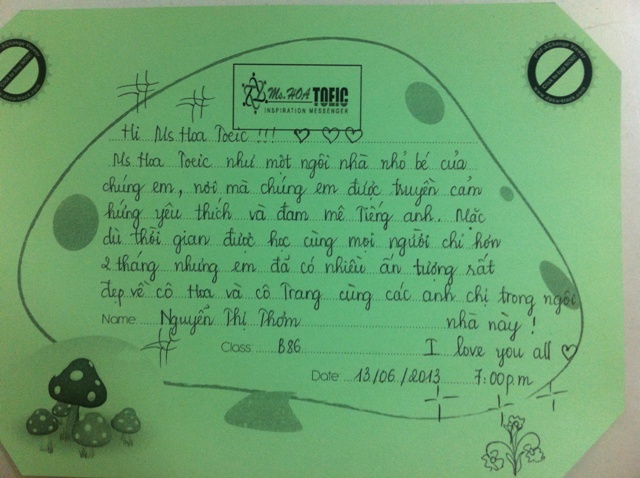 Ms. HOA TOEIC
INSPIRATION MESSENGER
Hi Ms Hoa Toeic !!! ♡ ♡♡
Ms Hoa Toeic như một ngôi nhà nhỏ bé của
chúng em, nơi mà chúng em được truyền cảm
hứng yêu thích và đam mê Tiếng anh. Mặc
dù thời gian được học cùng mọi người chỉ hơn
2 tháng nhưng em đã có nhiều ấn tượng rất
đẹp về cô Hoa và cô Trang cùng các anh chị trong ngôi
Name Nguyễn Thị Thơm nhà này !
Class B86 I love you all ♡
Date 13/06/2013 7:00p.m